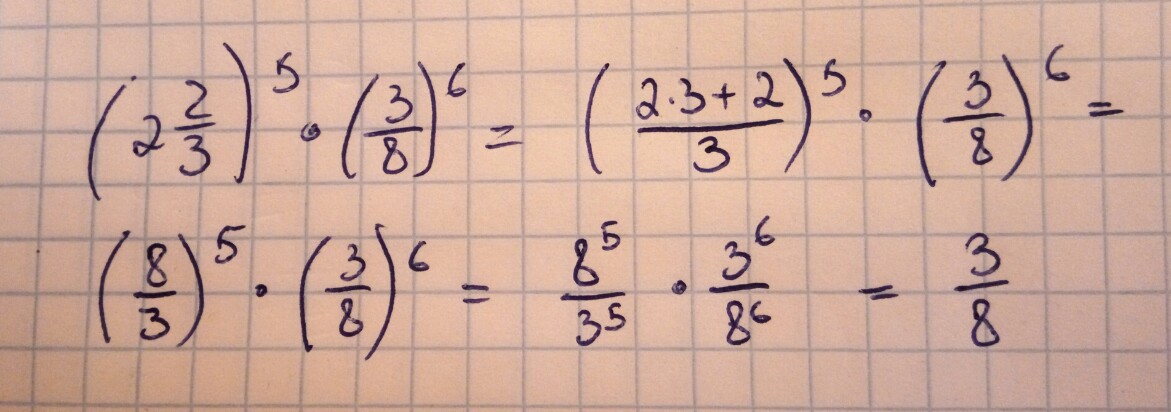 (2 2/3)^5 · (3/8)^6 = ((2·3+2)/3)^5 · (3/8)^6 =
(8/3)^5 · (3/8)^6 = 8^5/3^5 · 3^6/8^6 = 3/8